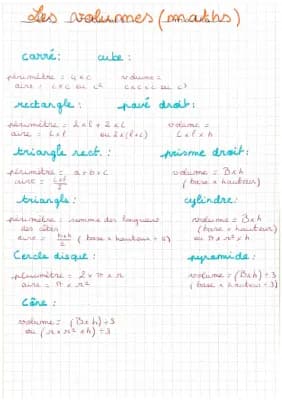 Les volumes (maths)
carré : cube :
périmètre = 4 x c volume =
aire = c x c ou c² c x c x c ou c³
rectangle : pavé droit :
périmètre = 2 x L + 2 x l volume =
aire = L x l ou 2 x (l + L) L x l x h
triangle rect. : prisme droit :
périmètre = a + b + c volume = B x h
aire = L x l / 2 (base x hauteur)
triangle : cylindre :
périmètre : somme des longueurs volume = B x h
des côtés (base x hauteur)
aire = b x h / 2 (base x hauteur ÷ 2) ou π x r² x h
Cercle disque : pyramide :
périmètre = 2 x π x r volume = (B x h) ÷ 3
aire = π x r² (base x hauteur ÷ 3)
Cône :
volume = (B x h) ÷ 3
ou (π x r² x h) ÷ 3